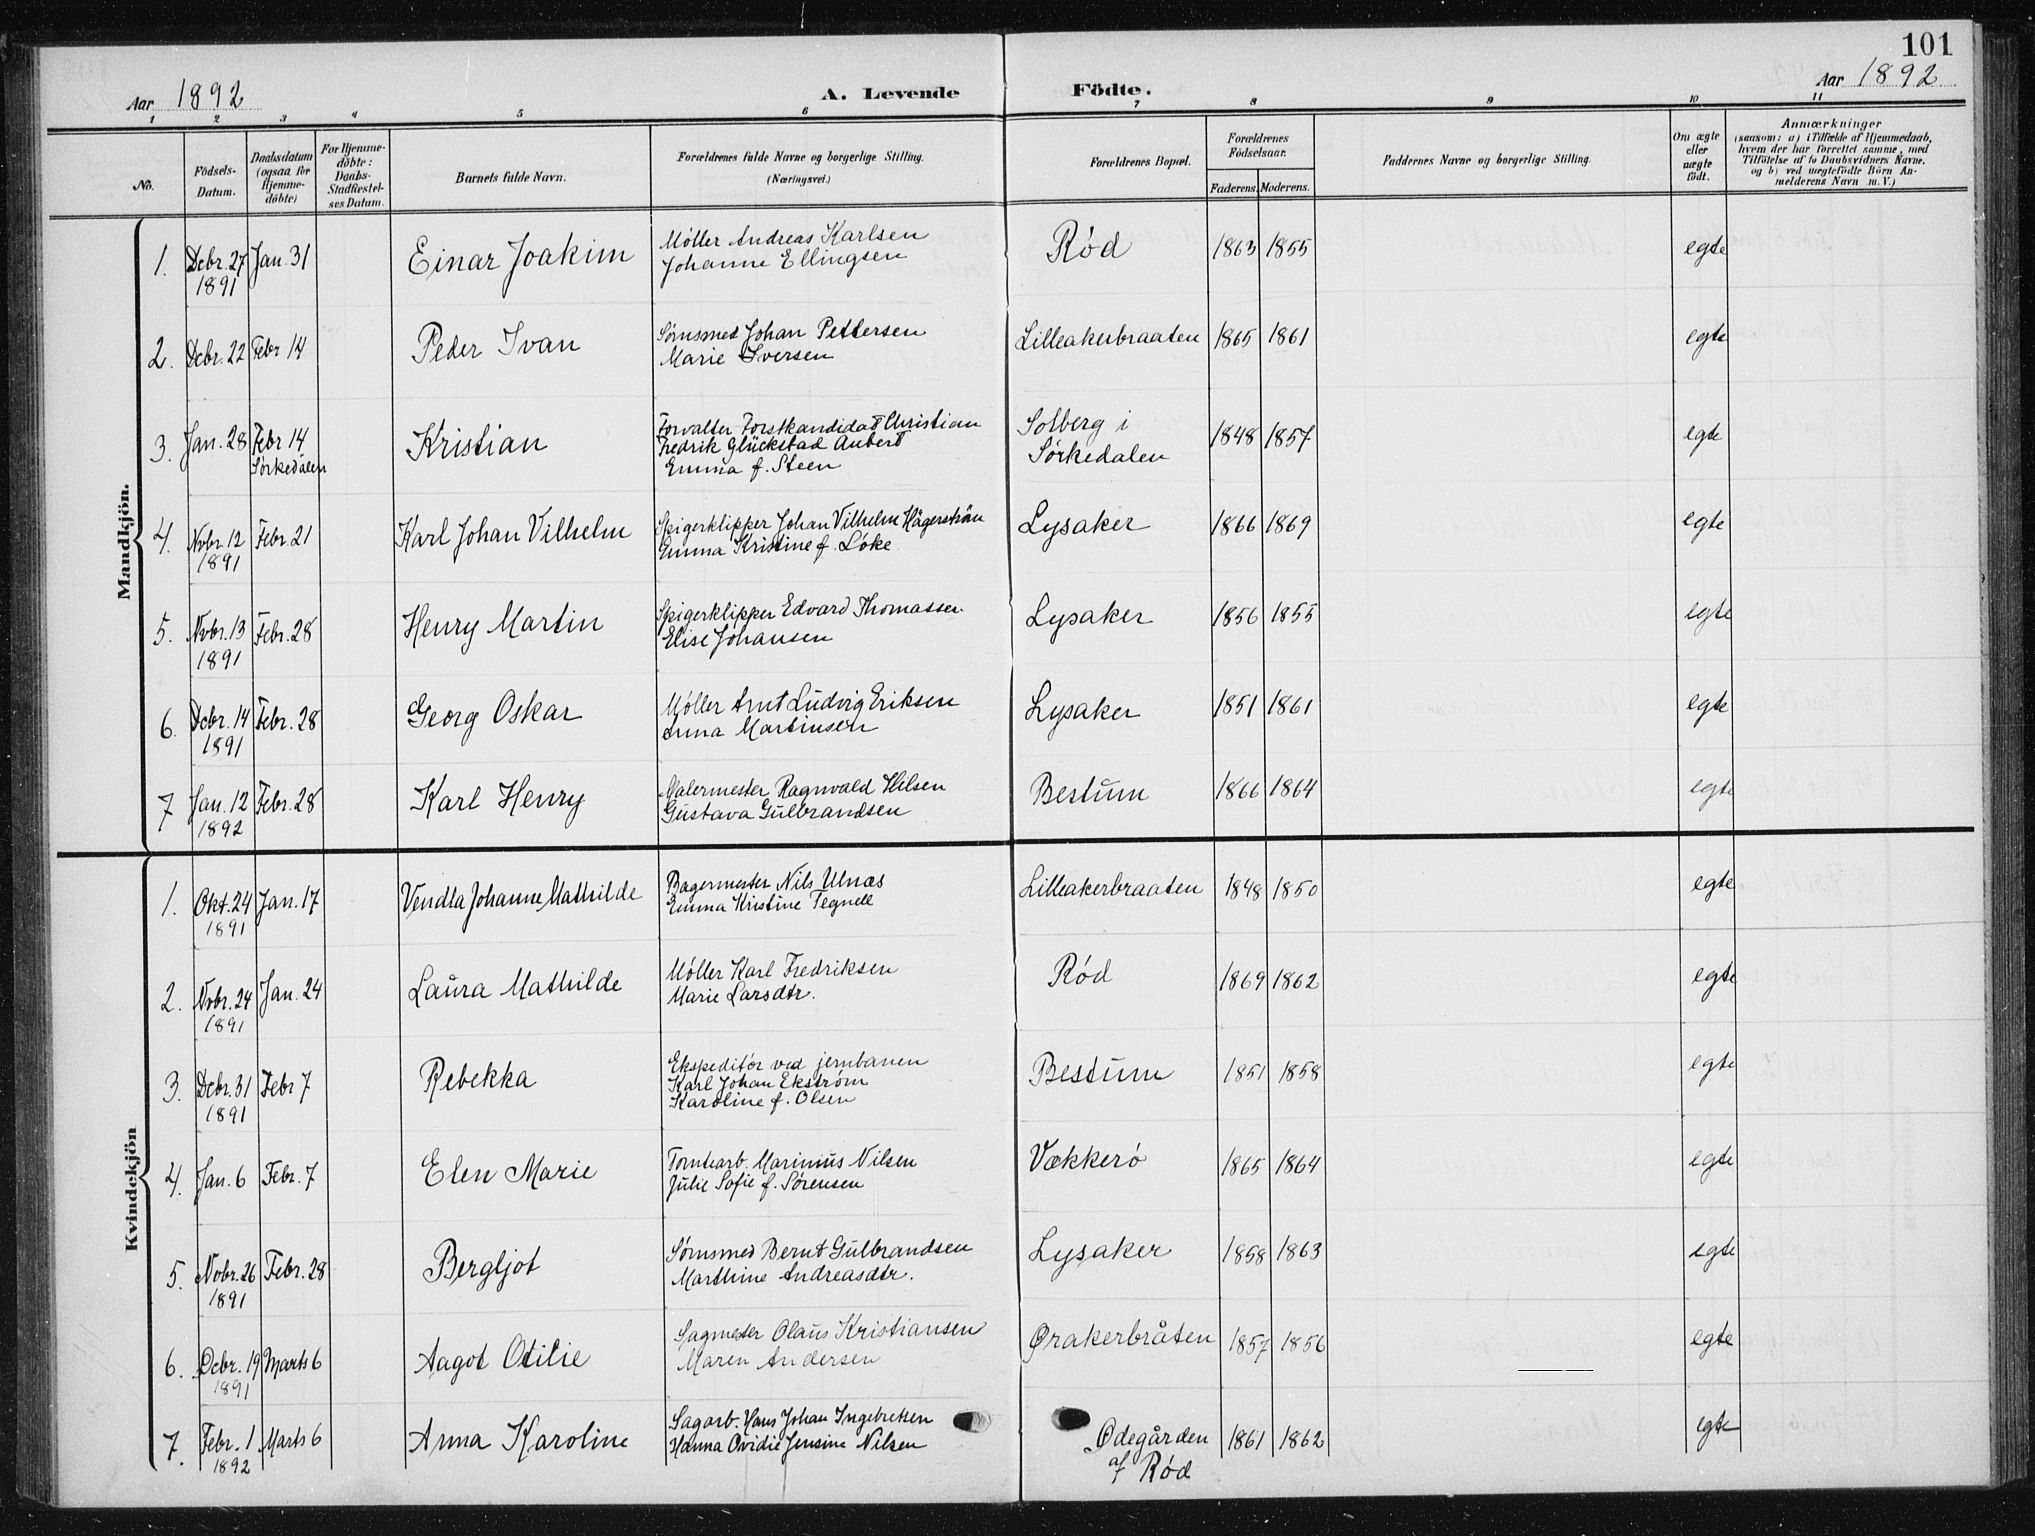 101
Aar 1892 A. Levende Födte. Aar 1892
1 2 3 4 5 6 7 8 9 10 11
No. Födsels-Datum. Daabsdatum (ogsaa for Hjemme-döbte) For Hjemme-döbte: Daabs-Stadfæstel-ses Datum. Barnets fulde Navn. Forældrenes fulde Navne og borgerlige Stilling. (Næringsvei.) Forældrenes Bopæl. Forældrenes Födselsaar. Faderens. Moderens. Faddernes Navne og borgerlige Stilling. Om ægte eller uægte födt. Anmærkninger (saasom: a) i Tilfælde af Hjemmedaab, hvem der har forrettet samme, med Tilföielse af to Daabsvidners Navne. og b) ved uegtefödte Börn An-melderens Navn m. V.)
Mandkjön.
1. Debr. 27 1891 Jan. 31 Einar Joakim Møller Andreas Karlsen Johanne Ellingsen Rød 1863 1855 egte
2. Debr. 22 Febr 14 Peder Ivan Sømsmed Johan Pettersen Marie Iversen Lilleakerbraaten 1865 1861 egte
3. Jan. 28 Febr 14 Sørkedalen Kristian Forvalter Forstkandidat Christian Fredrik Glückstad Aubert Emma f. Steen Solberg i Sørkedalen 1848 1857 egte
4. Nvbr. 12 1891 Febr. 21 Karl Johan Vilhelm Spigerklipper Johan Vilhelm Hägerström Emma Kristine f. Løke Lysaker 1866 1869 egte
5. Nvbr. 13 1891 Febr. 28 Henry Martin Spigerklipper Edvard Thomassen Elise Johansen Lysaker 1856 1855 egte
6. Debr. 14 1891 Febr. 28 Georg Oskar Møller Arnt Ludvig Eriksen Anna Martinsen Lysaker 1851 1861 egte
7 Jan. 12 1892 Febr. 28 Karl Henry Malermester Ragnvald Hilsen Gustava Gulbrandsen Bestum 1866 1864 egte
Kvindekjön
1. Okt. 24 1891 Jan. 17 Vendla Johanne Mathilde Bagermester Nils Ulnæs Emma Kristine Tegnell Lilleakerbraaten 1848 1850 egte
2. Nvbr. 24 1891 Jan. 24 Laura Mathilde Møller Karl Fredriksen Marie Larsdtr. Rød 1869 1862 egte
3. Debr. 31 1891 Febr 7 Rebekka Ekspeditør ved jernbanen Karl Johan Ekstrøm Karoline f. Olsen Bestum 1851 1858 egte
4. Jan. 6 Febr. 7 Elen Marie Tomtearb. Marinius Nilsen Julie Sofie f. Sørensen Vækkerø 1865 1864 egte
5. Nobr. 26 1891 Febr. 28 Bergljot Sømsmed Bernt Gulbrandsen Marthine Andreasdtr. Lysaker 1858 1863 egte
6. Debr. 19 1891 Marts 6 Aagot Otilie Sagmester Olaus Kristiansen Maren Andersen Ørakerbråten 1857 1856 egte
7. Febr. 1 1892 Marts 6 Anna Karoline Sagarb. Hans Johan Ingebretsen Hanna Ovidie Jensine Nilsen Ødegården af Rød 1861 1862 egte